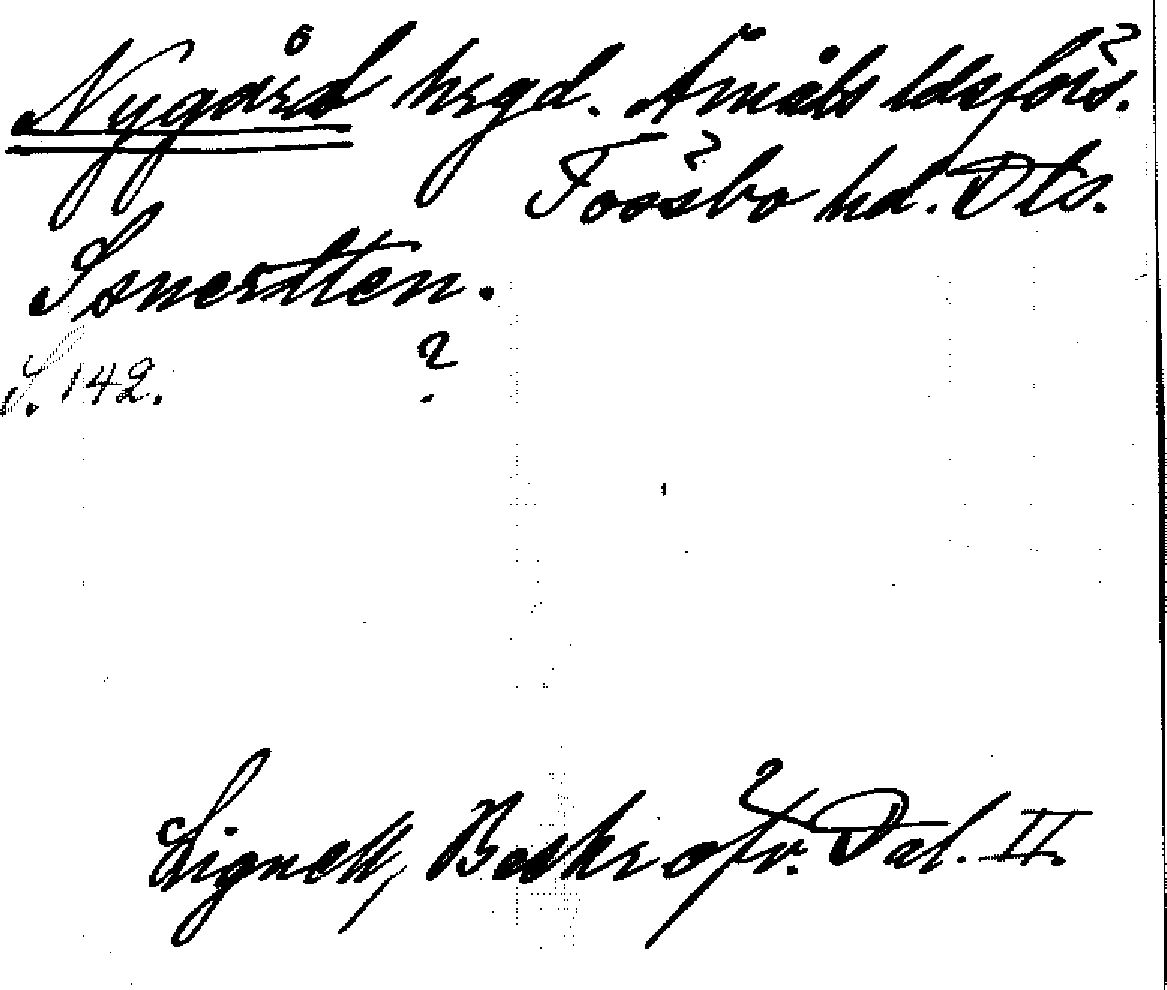 Nygård hrgd. Åmåls ldsförs.
Tössbo hd. Dls.
Isnerdtten.
S. 142.
?
Lignell, Beskr ofv. Dal. II.